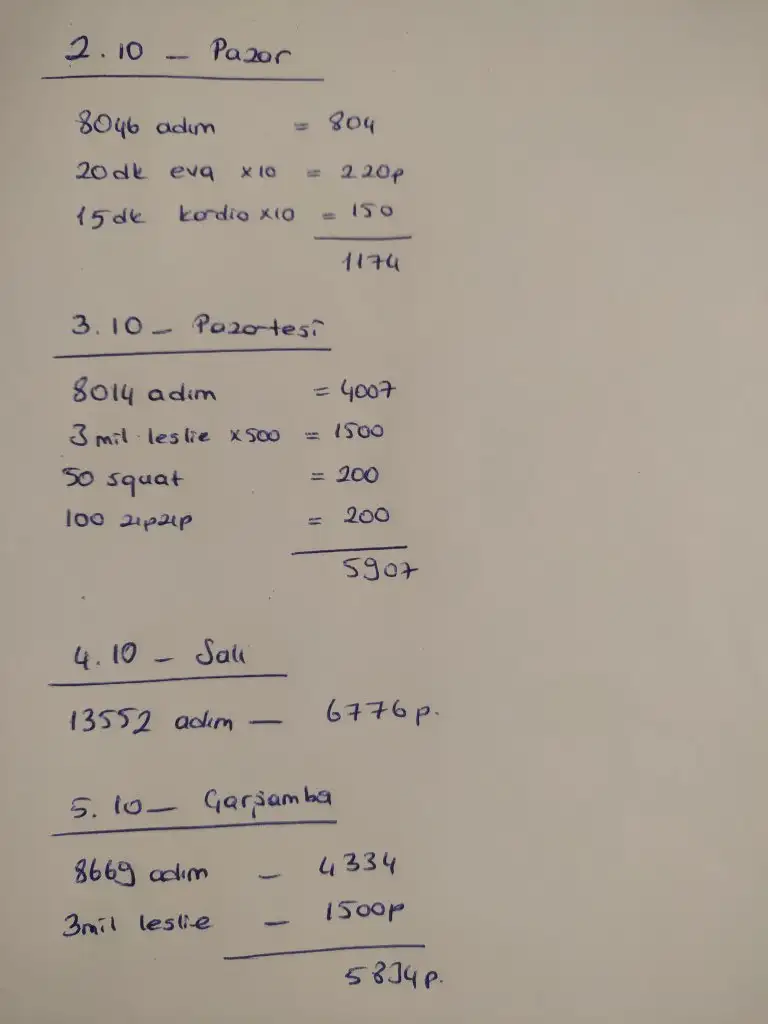 2.10 - Pazar
8046 adım = 804
20dk eva x10 = 220p
15dk kardio x10 = 150
1174
3.10 - Pazartesi
8014 adım = 4007
3 mil leslie x500 = 1500
50 squat = 200
100 zıpzıp = 200
5907
4.10 - Salı
13552 adım - 6776p.
5.10 - Çarşamba
8669 adım - 4334
3mil leslie - 1500p
5834p.